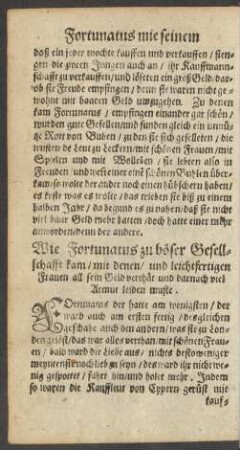 Fortunatus mie seinem
daß ein jeder mochte kauffen und verkauffen / fien-
gen die zween Jungen auch an / ihr Kauffmann-
schafft zu verkauffen / und löseten ein groß Geld / dar-
ob sie Freude empfingen / denn sie waren nicht ge-
wohnt mit baarem Geld umzugehen. Zu denen
kam Fortunatus / empfingen einander gar schön /
wurden gute Gesellen / und funden gleich ein unnü-
tze Rott von Buben / zu den sie sich geselleten / die
wusten de Leut zu Leckern / mit schönen Frauen / mit
Spielen und mit Wolleben / sie lebten also in
Freuden / und wenn einer eine schönen Buhlen über-
kam / so wolte der ander noch einen hübschern haben /
es koste was es wolte / das trieben sie biß zu einem
halben Jahr / da begund es zu nahen / daß sie nicht
viel baar Geld mehr hatten / doch hatte einer mehr
anworden / denn der andere.
Wie Fortunatus zu böser Gesell-
schafft kam / mit denen / und leichtfertigen
Frauen all sein Geld verthät und darnach viel
Armut leiden muste.
FOrtunatus der hatte am wenigsten / der
ward auch am ersten fertig / desgleichen
geschahe auch den andern / was sie zu Lon-
den gelöst / das war alles verthan / mit schönen Frau-
en / bald ward die Liebe aus / nichts destoweniger
meynen sie noch lieb zu seyn / des ward ihr nicht we-
nig gespottet / fahrt hin / und holet mehr. Indem
so waren die Kauffleut von Cypern gerüst mit
kauf-